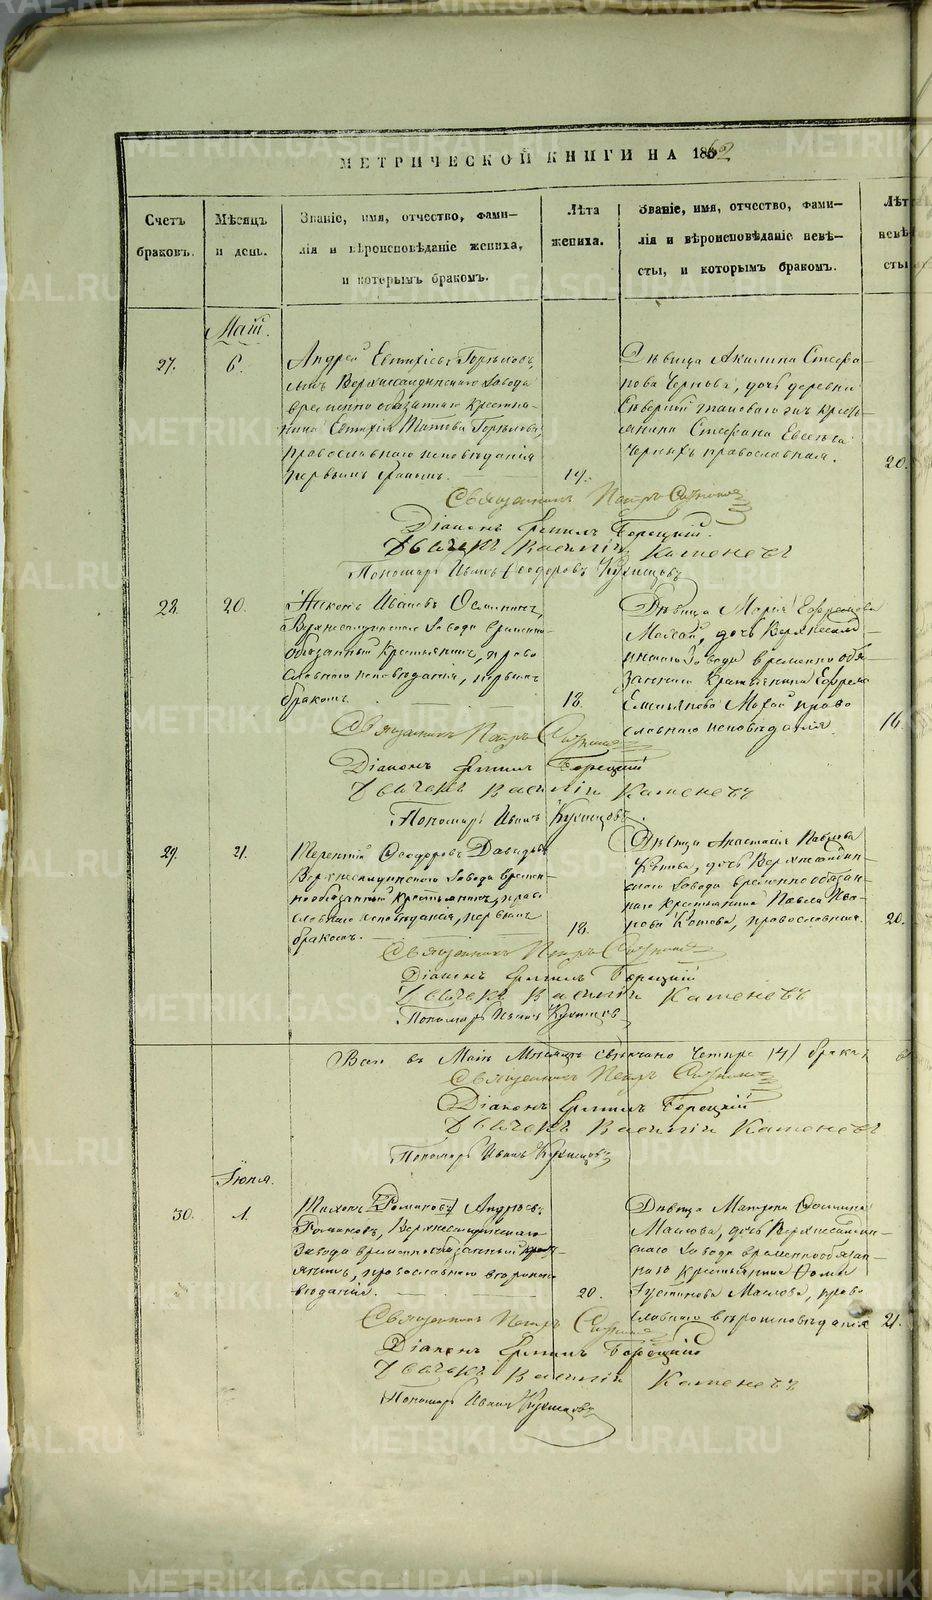 МЕТРИЧЕСКОЙ КНИГИ НА 1862
Счетъ браковъ.
Мѣсяцъ и день.
Званіе, имя, отчество, фами-
лія и вѣроисповѣданіе жениха,
и которымъ бракомъ.
Лѣта
жениха.
Званіе, имя, отчество, фами-
лія и вѣроисповѣданіе невѣ-
сты, и которымъ бракомъ.
Лѣт
невѣ
сты
Маій.
27.
6.
Андрей Евтихіевъ
Верхнесалдинскаго Завода
временно обязаннаго крестья-
нина Евтихія
православнаго исповѣданія
первымъ бракомъ.
19.
Дѣвица Акилина Стефа-
нова Чернова, дочь деревни
Сѣверной крестья-
нина Стефана Евсѣева
Черныхъ православная.
20.
Священникъ Петръ
Діаконъ
Дьячекъ Василій Каменевъ
Пономарь Иванъ Феодоровъ
28.
20.
Никонъ Ивановъ
Верхнесалдинскаго Завода временно
обязанный крестьянинъ, право
славнаго исповѣданія, первымъ
бракомъ.
18.
Дѣвица Марія Ефремова
дочь Верхнесалд
инскаго Завода временно обя-
заннаго Крестьянина Ефрема
Емельянова право
славнаго исповѣданія.
16.
Священникъ Петръ
Діаконъ
Дьячекъ Василій Каменевъ
Пономарь Иванъ
29.
21.
Терентій Феодоровъ Давыдовъ
Верхнесалдинскаго Завода времен-
нообязанный крестьянинъ, право
славнаго исповѣданія, первымъ
бракомъ.
18.
Дѣвица Анастасія Павлова
Котова, дочь Верхнесалдин-
скаго Завода временнообязан-
наго крестьянина Павла Ива-
нова Котова, православная.
20.
Священникъ Петръ
Діаконъ
Дьячекъ Василій Каменевъ
Пономарь Иванъ
Всего въ Маіѣ Мѣсяцѣ вѣнчано четыре /4/ брака,
Священникъ Петръ
Діаконъ
Дьячекъ Василій Каменевъ
Пономарь Иванъ
Іюня.
30.
1.
Тихонъ Андрѣевъ
Романовъ, Верхнесалдинскаго
Завода временнообязанный крест-
янинъ, православнаго вѣроиспо-
вѣданія.
20.
Дѣвица Матрона Фомина
Маслова, дочь Верхнесалдин-
скаго Завода временнообязан-
наго крестьянина Фомы
Іустинова Маслова, право
славнаго вѣроисповѣданія
21.
Священникъ Петръ
Діаконъ
Дьячекъ Василій Каменевъ
Пономарь Иванъ
METRIKI.GASO-URAL.RU